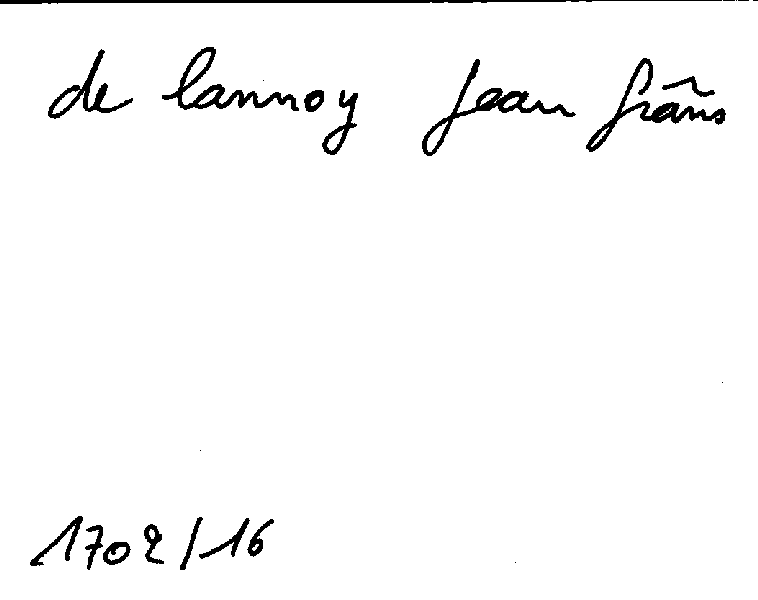 de lannoy Jean frãns
1702/16